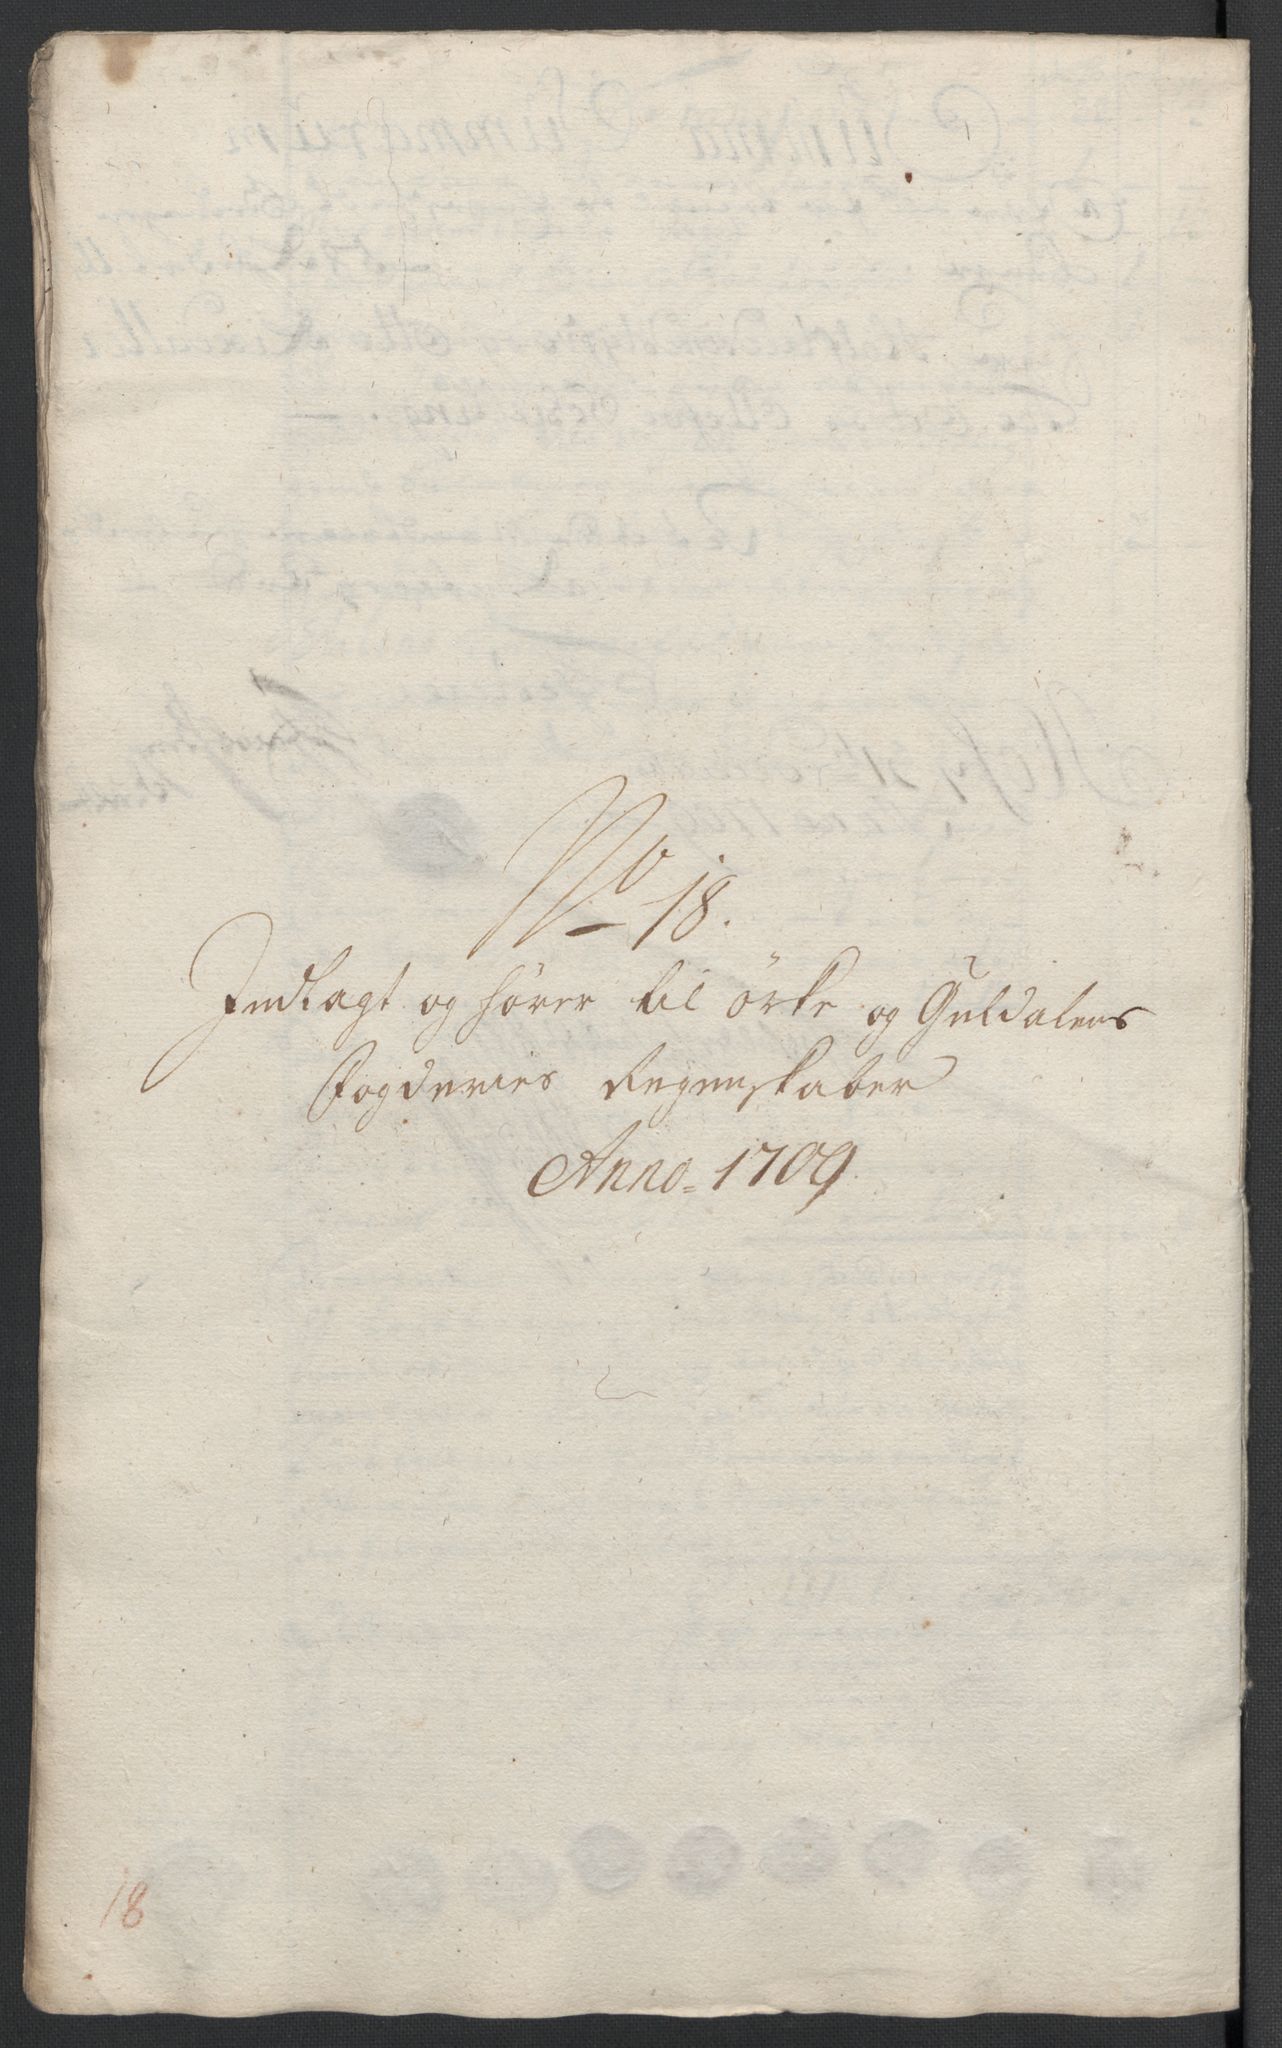 No 18.
Indlagt og hører til Ørke og Guldalens
Fogderies Regenskaber
Anno 1709
18